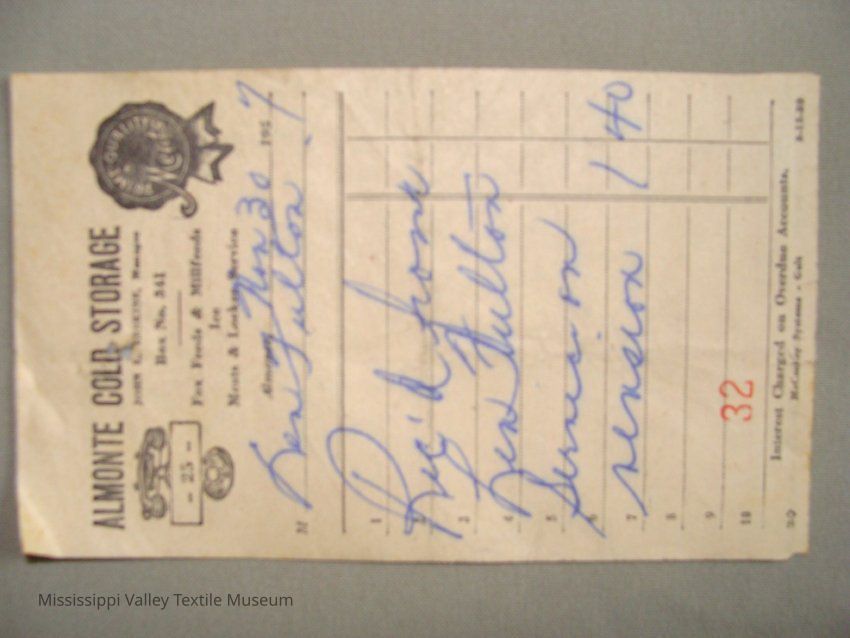 ALMONTE COLD STORAGE
JOHN
Manager
Box No. 341
- 25 -
Fox Feeds & Millfeeds
Ice
Meats & Locker Service
Almonte, Nov 30 1957
M Len Fulton
1
2 Rec'd from
3
4 Len Fulton
5
6 Service on
7 version 1 40
8
9
10
32
Interest Charged on Overdue Accounts.
Mississippi Valley Textile Museum